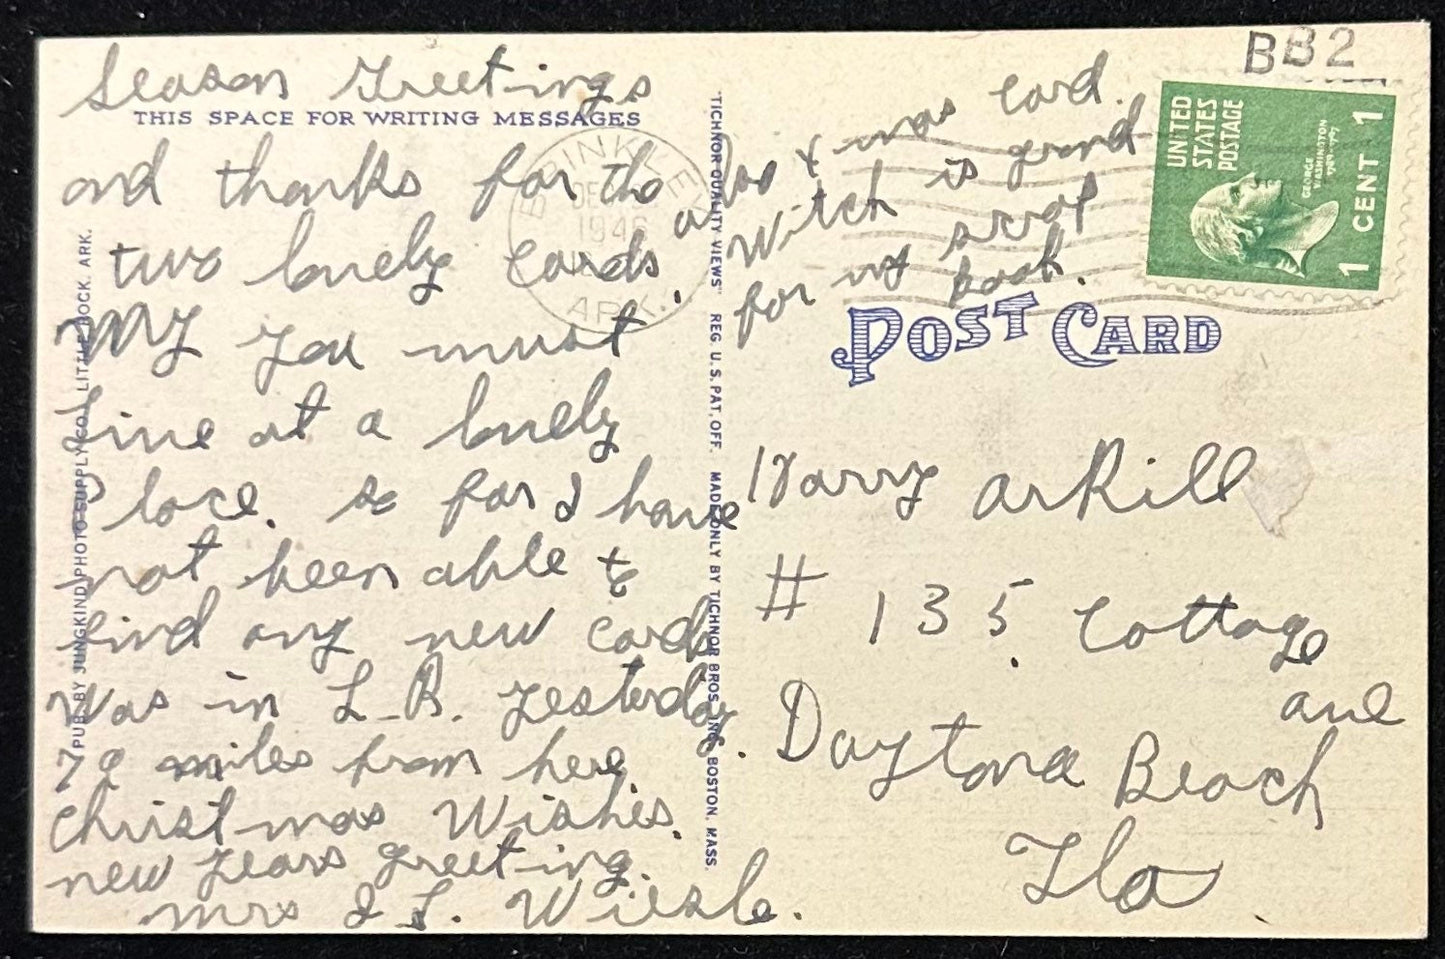 Season Greetings
THIS SPACE FOR WRITING MESSAGES
and thanks for the
two lovely cards.
My you must
Live at a lovely
Place. so far I have
not been able to
find any new cards
Was in L.R. yesterday.
70 miles from here,
Christ-mas Wishes.
new years greeting.
mrs
also x-mas card.
Witch is grand
for my scrap
book.
BRINKLEY
DEC
1946
ARK.
PUB. BY JUNGKIND PHOTO SUPPLY CO., LITTLE ROCK, ARK.
"TICHNOR QUALITY VIEWS" REG. U.S. PAT. OFF. MADE ONLY BY TICHNOR BROS., INC., BOSTON, MASS.
BB2
UNITED
STATES
POSTAGE
GEORGE
WASHINGTON
1789-1797
1 CENT 1
POST CARD
Harry arkill
# 135 Cottage
ave
Daytona Beach
Fla